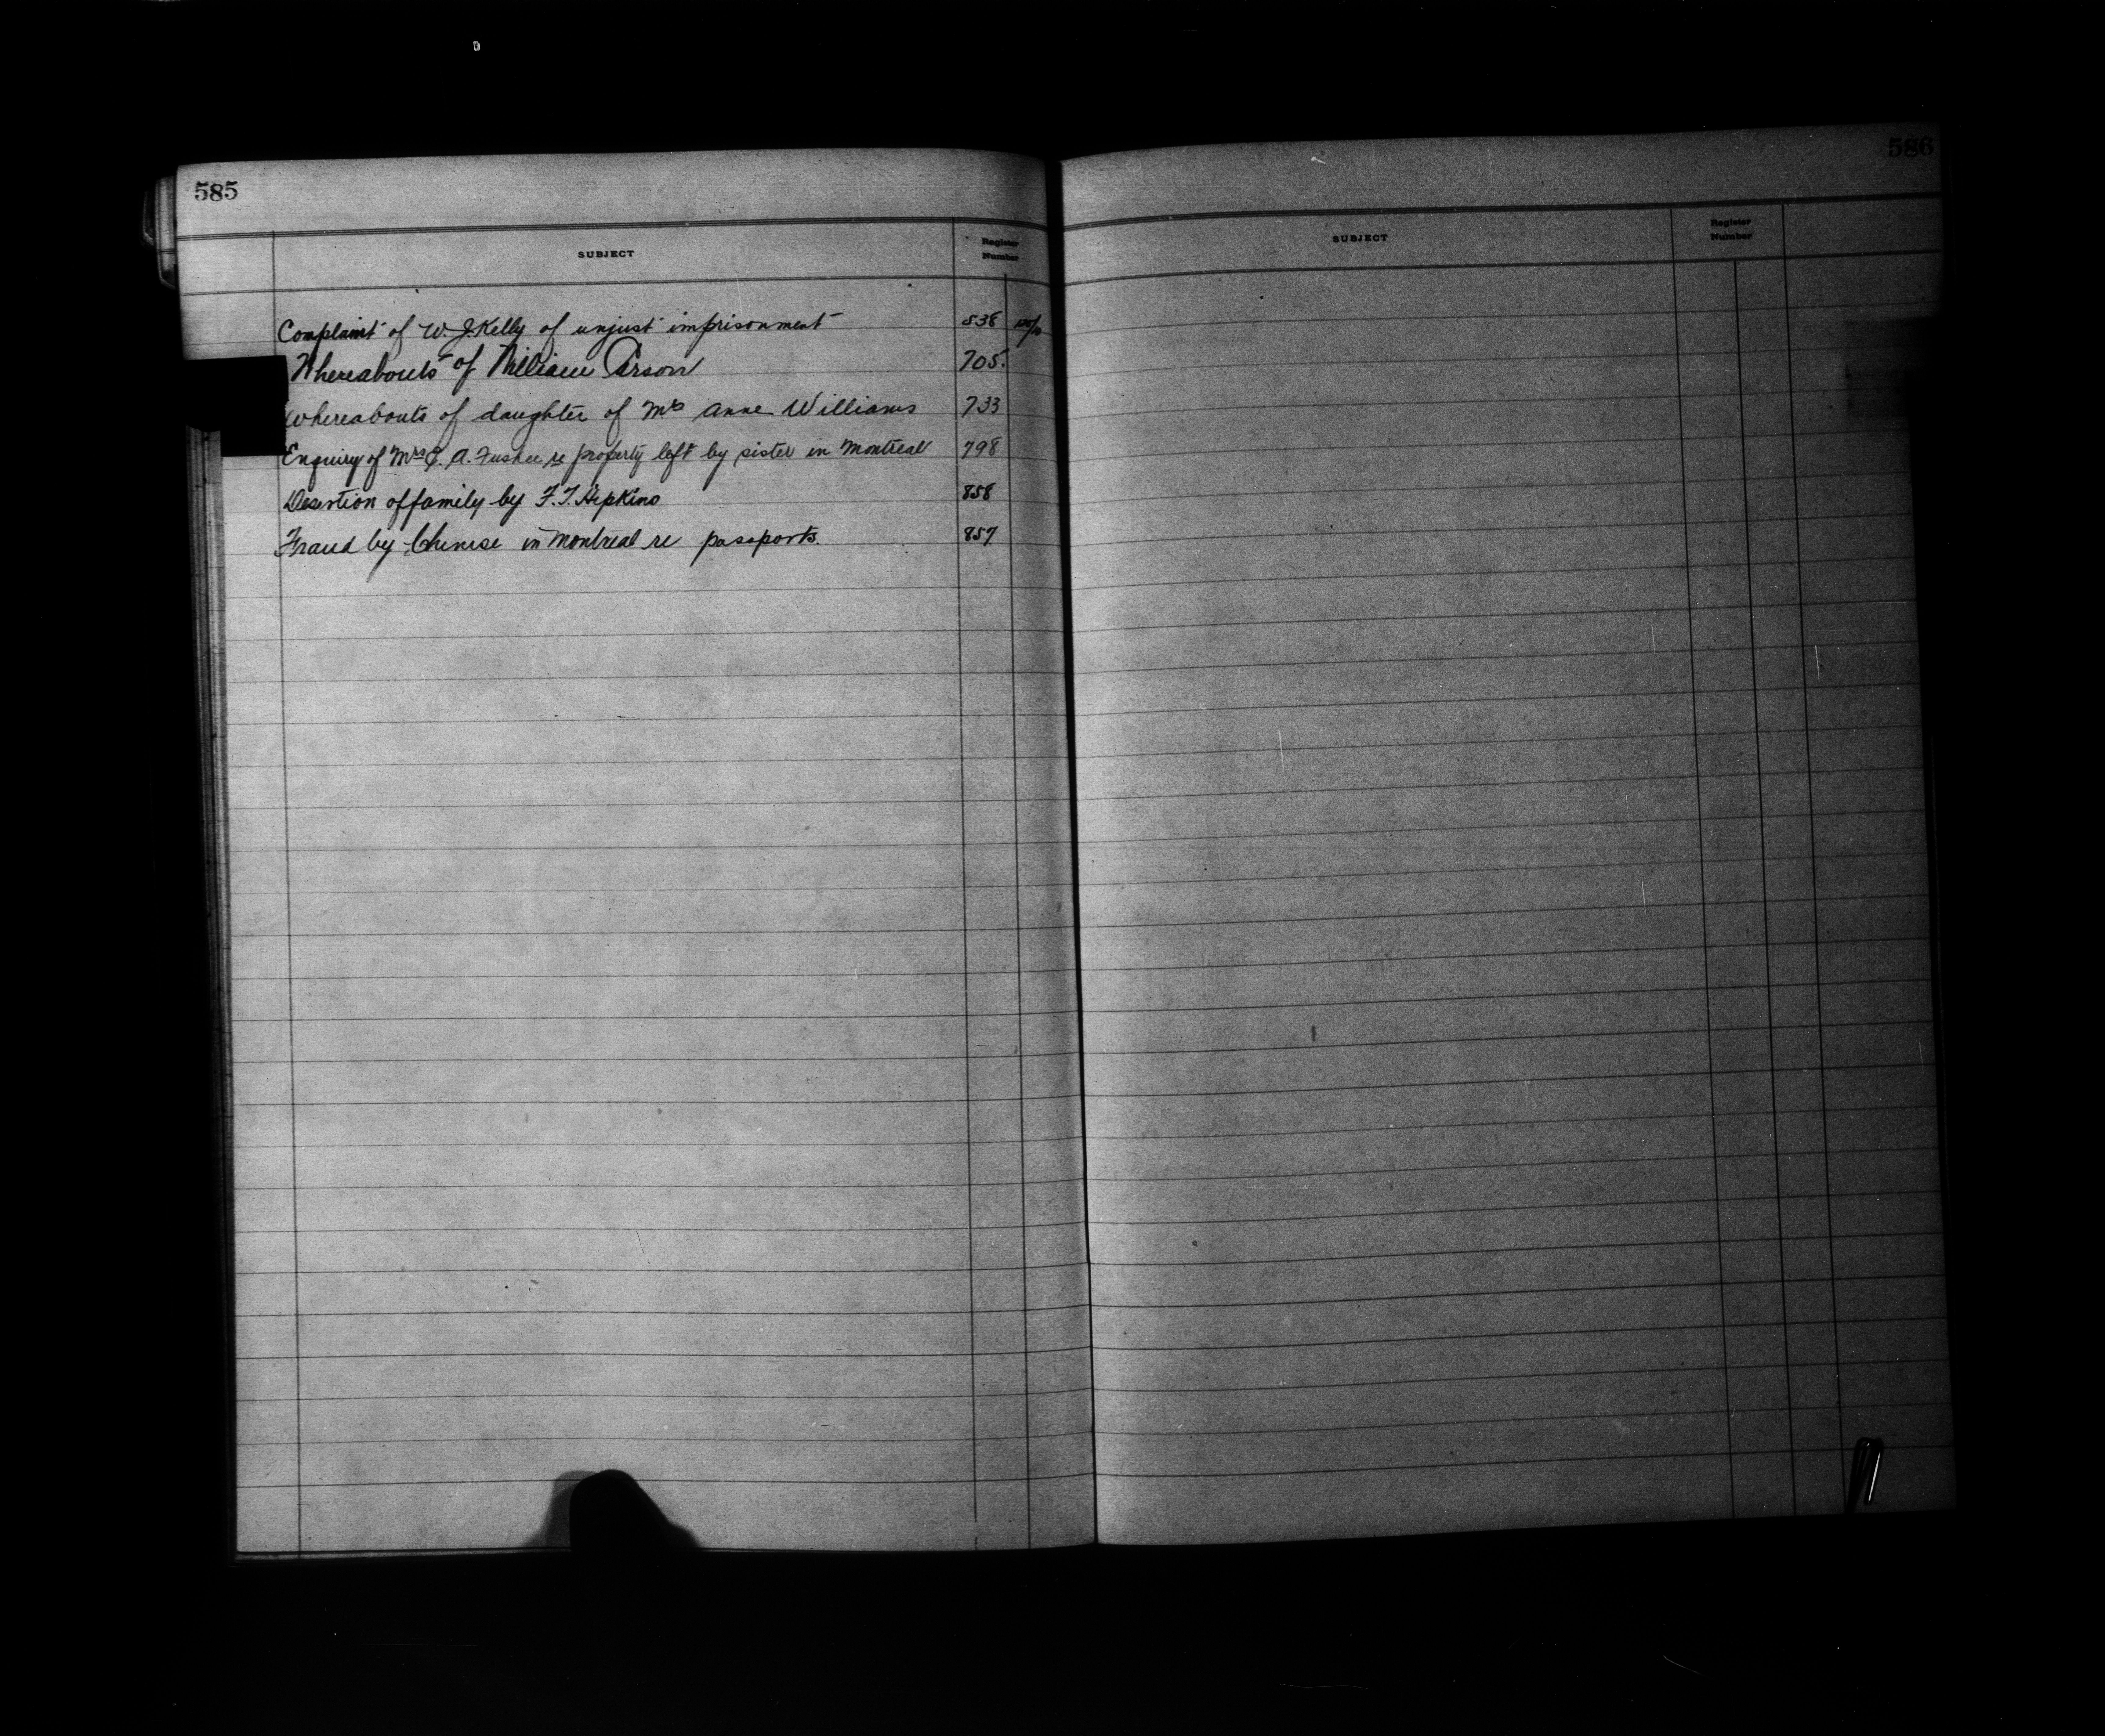 585
SUBJECT
Register Number
Complaint of W. J. Kelly of unjust imprisonment 538
Whereabouts of William Orson 705.
Whereabouts of daughter of Mrs Anne Williams 733
Enquiry of Mrs A. re property left by sister in Montreal 798
Desertion of family by F. T. Hipkins 858
Fraud by Chinese in Montreal re passports. 857
586
SUBJECT
Register Number